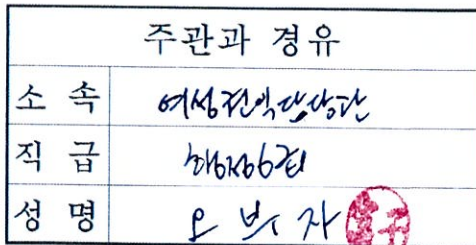 주관과 경유
소 속 여성권익담당관
직 급 행정6급
성 명